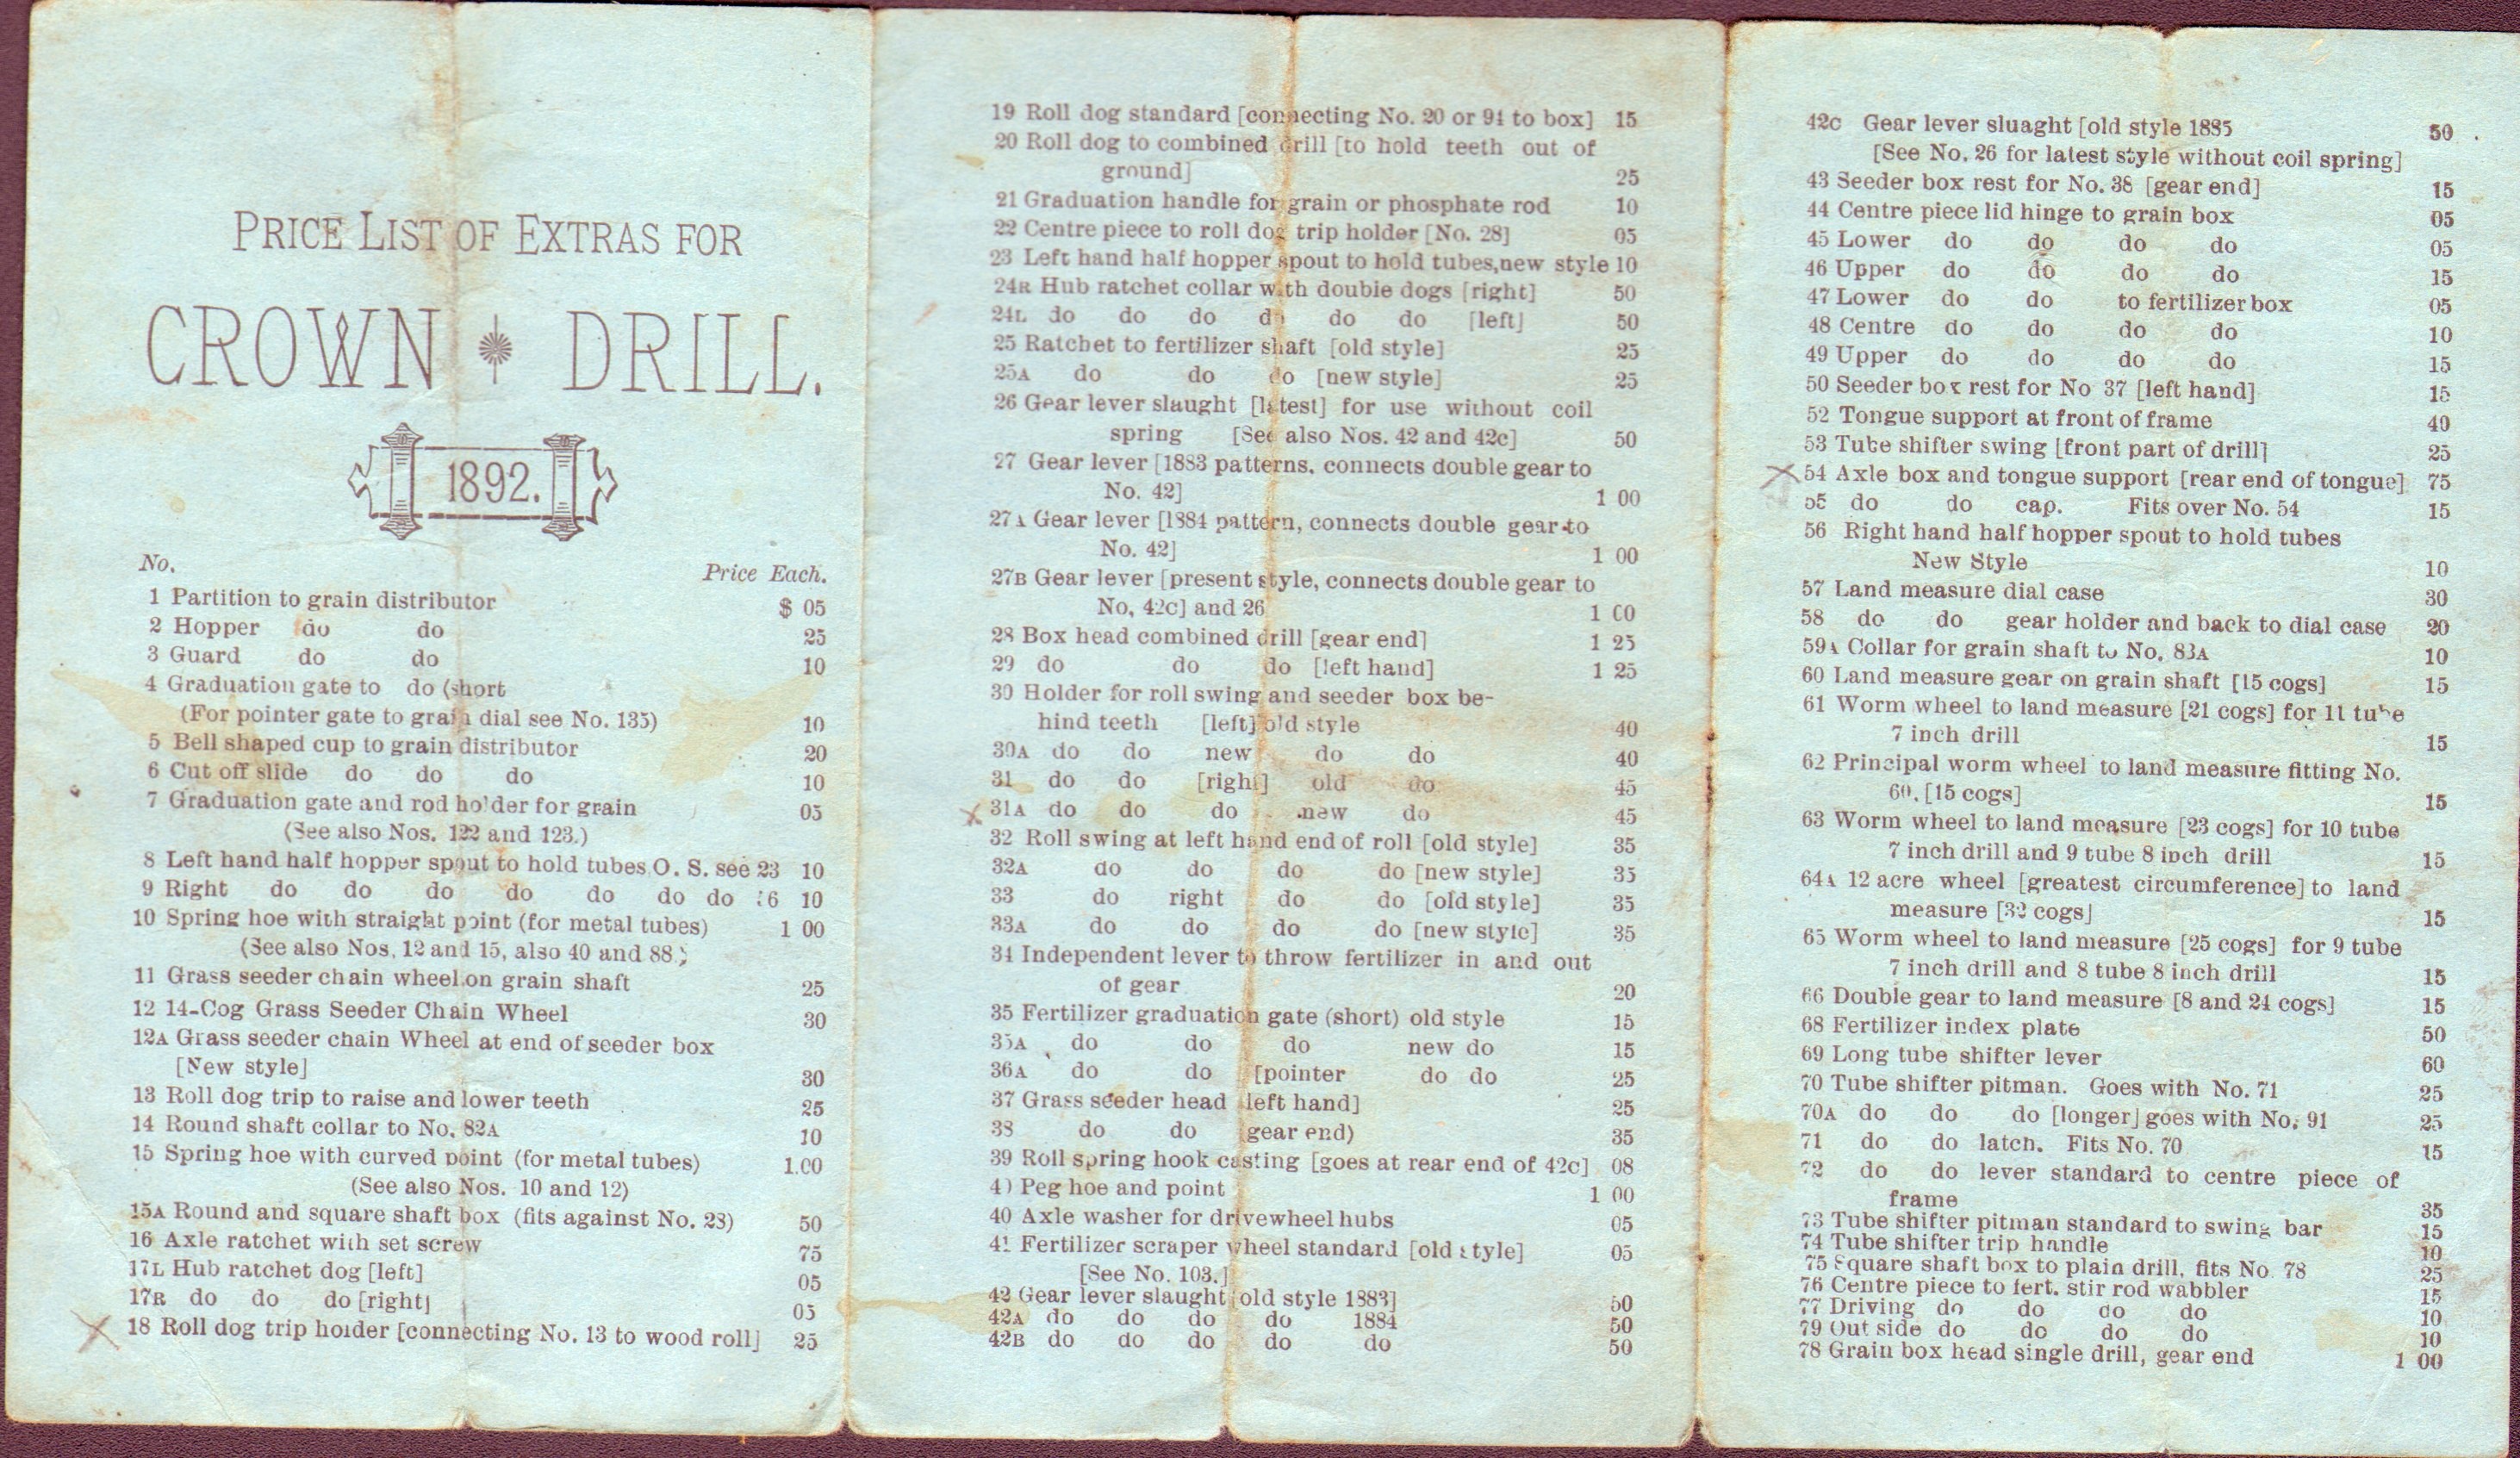 PRICE LIST OF EXTRAS FOR
CROWN DRILL.
1892.
No. Price Each.
1 Partition to grain distributor $ 05
2 Hopper do do 25
3 Guard do do 10
4 Graduation gate to do (short
(For pointer gate to grain dial see No. 135) 10
5 Bell shaped cup to grain distributor 20
6 Cut off slide do do do 10
7 Graduation gate and rod holder for grain 05
(See also Nos. 122 and 123.)
8 Left hand half hopper spout to hold tubes O. S. see 23 10
9 Right do do do do do do do 10
10 Spring hoe with straight point (for metal tubes) 1 00
(See also Nos, 12 and 15, also 40 and 88.)
11 Grass seeder chain wheel on grain shaft 25
12 14-Cog Grass Seeder Chain Wheel 30
12A Grass seeder chain Wheel at end of seeder box
[New style] 30
13 Roll dog trip to raise and lower teeth 25
14 Round shaft collar to No. 82A 10
15 Spring hoe with curved point (for metal tubes) 1.00
(See also Nos. 10 and 12)
15A Round and square shaft box (fits against No. 28) 50
16 Axle ratchet with set screw 75
17L Hub ratchet dog [left] 05
17R do do do [right] 05
18 Roll dog trip holder [connecting No. 13 to wood roll] 25
19 Roll dog standard [connecting No. 20 or 94 to box] 15
20 Roll dog to combined drill [to hold teeth out of
ground] 25
21 Graduation handle for grain or phosphate rod 10
22 Centre piece to roll dog trip holder [No. 28] 05
23 Left hand half hopper spout to hold tubes, new style 10
24R Hub ratchet collar with double dogs [right] 50
24L do do do do do do [left] 50
25 Ratchet to fertilizer shaft [old style] 25
25A do do do [new style] 25
26 Gear lever slaught [latest] for use without coil
spring [See also Nos. 42 and 42C] 50
27 Gear lever [1883 patterns, connects double gear to
No. 42] 1 00
27A Gear lever [1884 pattern, connects double gear to
No. 42] 1 00
27B Gear lever [present style, connects double gear to
No, 42C] and 26 1 00
28 Box head combined drill [gear end] 1 25
29 do do do [left hand] 1 25
30 Holder for roll swing and seeder box be-
hind teeth [left] old style 40
30A do do new do do 40
31 do do [right] old do 45
31A do do do new do 45
32 Roll swing at left hand end of roll [old style] 35
32A do do do do [new style] 35
33 do right do do [old style] 35
33A do do do do [new style] 35
34 Independent lever to throw fertilizer in and out
of gear 20
35 Fertilizer graduation gate (short) old style 15
35A do do do new do 15
36A do do [pointer do do 25
37 Grass seeder head [left hand] 25
38 do do (gear end) 35
39 Roll spring hook casting [goes at rear end of 42C] 08
40 Peg hoe and point 1 00
40 Axle washer for drivewheel hubs 05
41 Fertilizer scraper wheel standard [old style] 05
[See No. 103.]
42 Gear lever slaught [old style 1883] 50
42A do do do do 1884 50
42B do do do do do 50
42C Gear lever sluaght [old style 1885 50
[See No. 26 for latest style without coil spring]
43 Seeder box rest for No. 38 [gear end] 15
44 Centre piece lid hinge to grain box 05
45 Lower do do do do 05
46 Upper do do do do 15
47 Lower do do to fertilizer box 05
48 Centre do do do do 10
49 Upper do do do do 15
50 Seeder box rest for No 37 [left hand] 15
52 Tongue support at front of frame 40
53 Tube shifter swing [front part of drill] 25
54 Axle box and tongue support [rear end of tongue] 75
55 do do cap. Fits over No. 54 15
56 Right hand half hopper spout to hold tubes
New Style 10
57 Land measure dial case 30
58 do do gear holder and back to dial case 20
59A Collar for grain shaft to No. 83A 10
60 Land measure gear on grain shaft [15 cogs] 15
61 Worm wheel to land measure [21 cogs] for 11 tube
7 inch drill 15
62 Principal worm wheel to land measure fitting No.
60. [15 cogs] 15
63 Worm wheel to land measure [23 cogs] for 10 tube
7 inch drill and 9 tube 8 inch drill 15
64A 12 acre wheel [greatest circumference] to land
measure [32 cogs] 15
65 Worm wheel to land measure [25 cogs] for 9 tube
7 inch drill and 8 tube 8 inch drill 15
66 Double gear to land measure [8 and 24 cogs] 15
68 Fertilizer index plate 50
69 Long tube shifter lever 60
70 Tube shifter pitman. Goes with No. 71 25
70A do do do [longer] goes with No. 91 25
71 do do latch. Fits No. 70 15
72 do do lever standard to centre piece of
frame 35
73 Tube shifter pitman standard to swing bar 15
74 Tube shifter trip handle 10
75 Square shaft box to plain drill, fits No. 78 25
76 Centre piece to fert. stir rod wabbler 15
77 Driving do do do do 10
79 Out side do do do do 10
78 Grain box head single drill, gear end 1 00